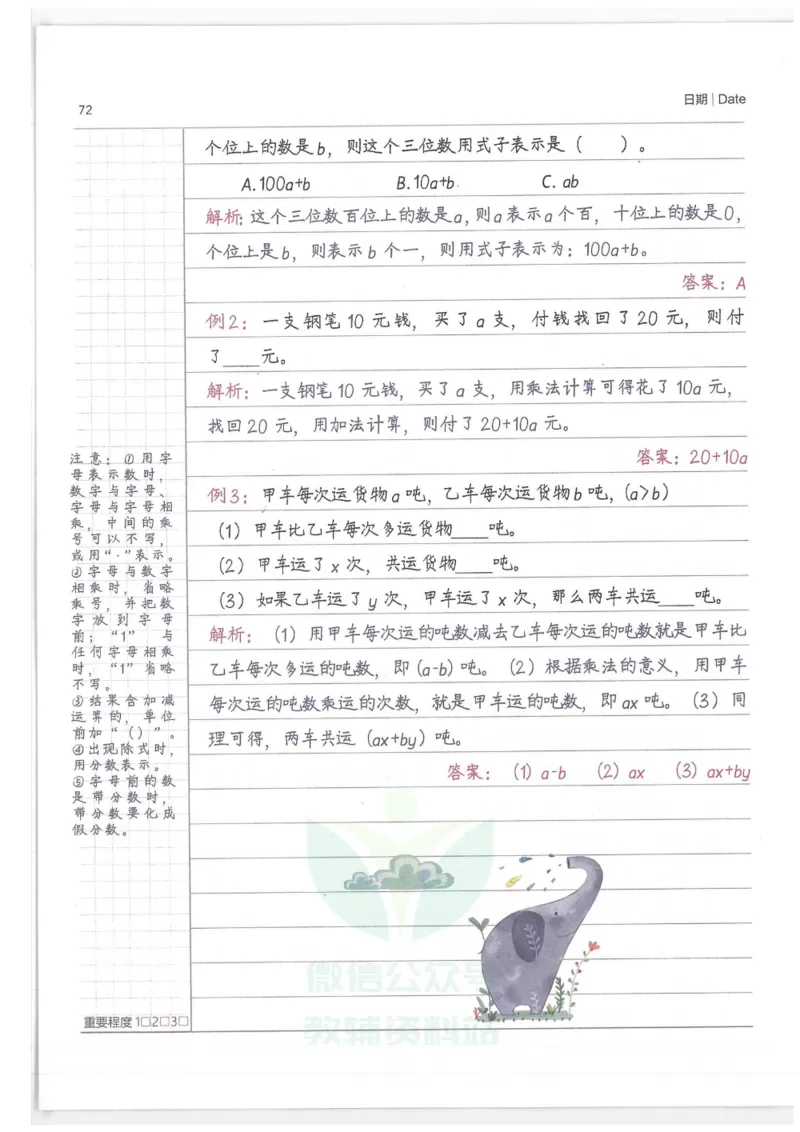 72
日期|Date
个位上的数是b，则这个三位数用式子表示是（　　）。
A.100a+b　　B.10a+b.　　C. ab
解析：这个三位数百位上的数是a，则a表示a个百，十位上的数是0，
个位上是b，则表示b个一，则用式子表示为：100a+b。
答案：A
例2：一支钢笔10元钱，买了a支，付钱找回了20元，则付
了____元。
解析：一支钢笔10元钱，买了a支，用乘法计算可得花了10a元，
找回20元，用加法计算，则付了20+10a元。
答案：20+10a
例3：甲车每次运货物a吨，乙车每次运货物b吨，（a>b）
（1）甲车比乙车每次多运货物____吨。
（2）甲车运了x次，共运货物____吨。
（3）如果乙车运了y次，甲车运了x次，那么两车共运____吨。
解析：（1）用甲车每次运的吨数减去乙车每次运的吨数就是甲车比
乙车每次多运的吨数，即（a-b）吨。（2）根据乘法的意义，用甲车
每次运的吨数乘运的次数，就是甲车运的吨数，即ax吨。（3）同
理可得，两车共运（ax+by）吨。
答案：（1）a-b　（2）ax　（3）ax+by
注意：①用字
母表示数时，
数字与字母、
字母与字母相
乘，中间的乘
号可以不写，
或用“·”表示。
②字母与数字
相乘时，省略
乘号，并把数
字放到字母
前；“1”与
任何字母相乘
时，“1”省略
不写。
③结果含加减
运算的，单位
前加“（）”。
④出现除式时，
用分数表示。
⑤字母前的数
是带分数时，
带分数要化成
假分数。
重要程度1□2□3□
微信公众号
教辅资料站